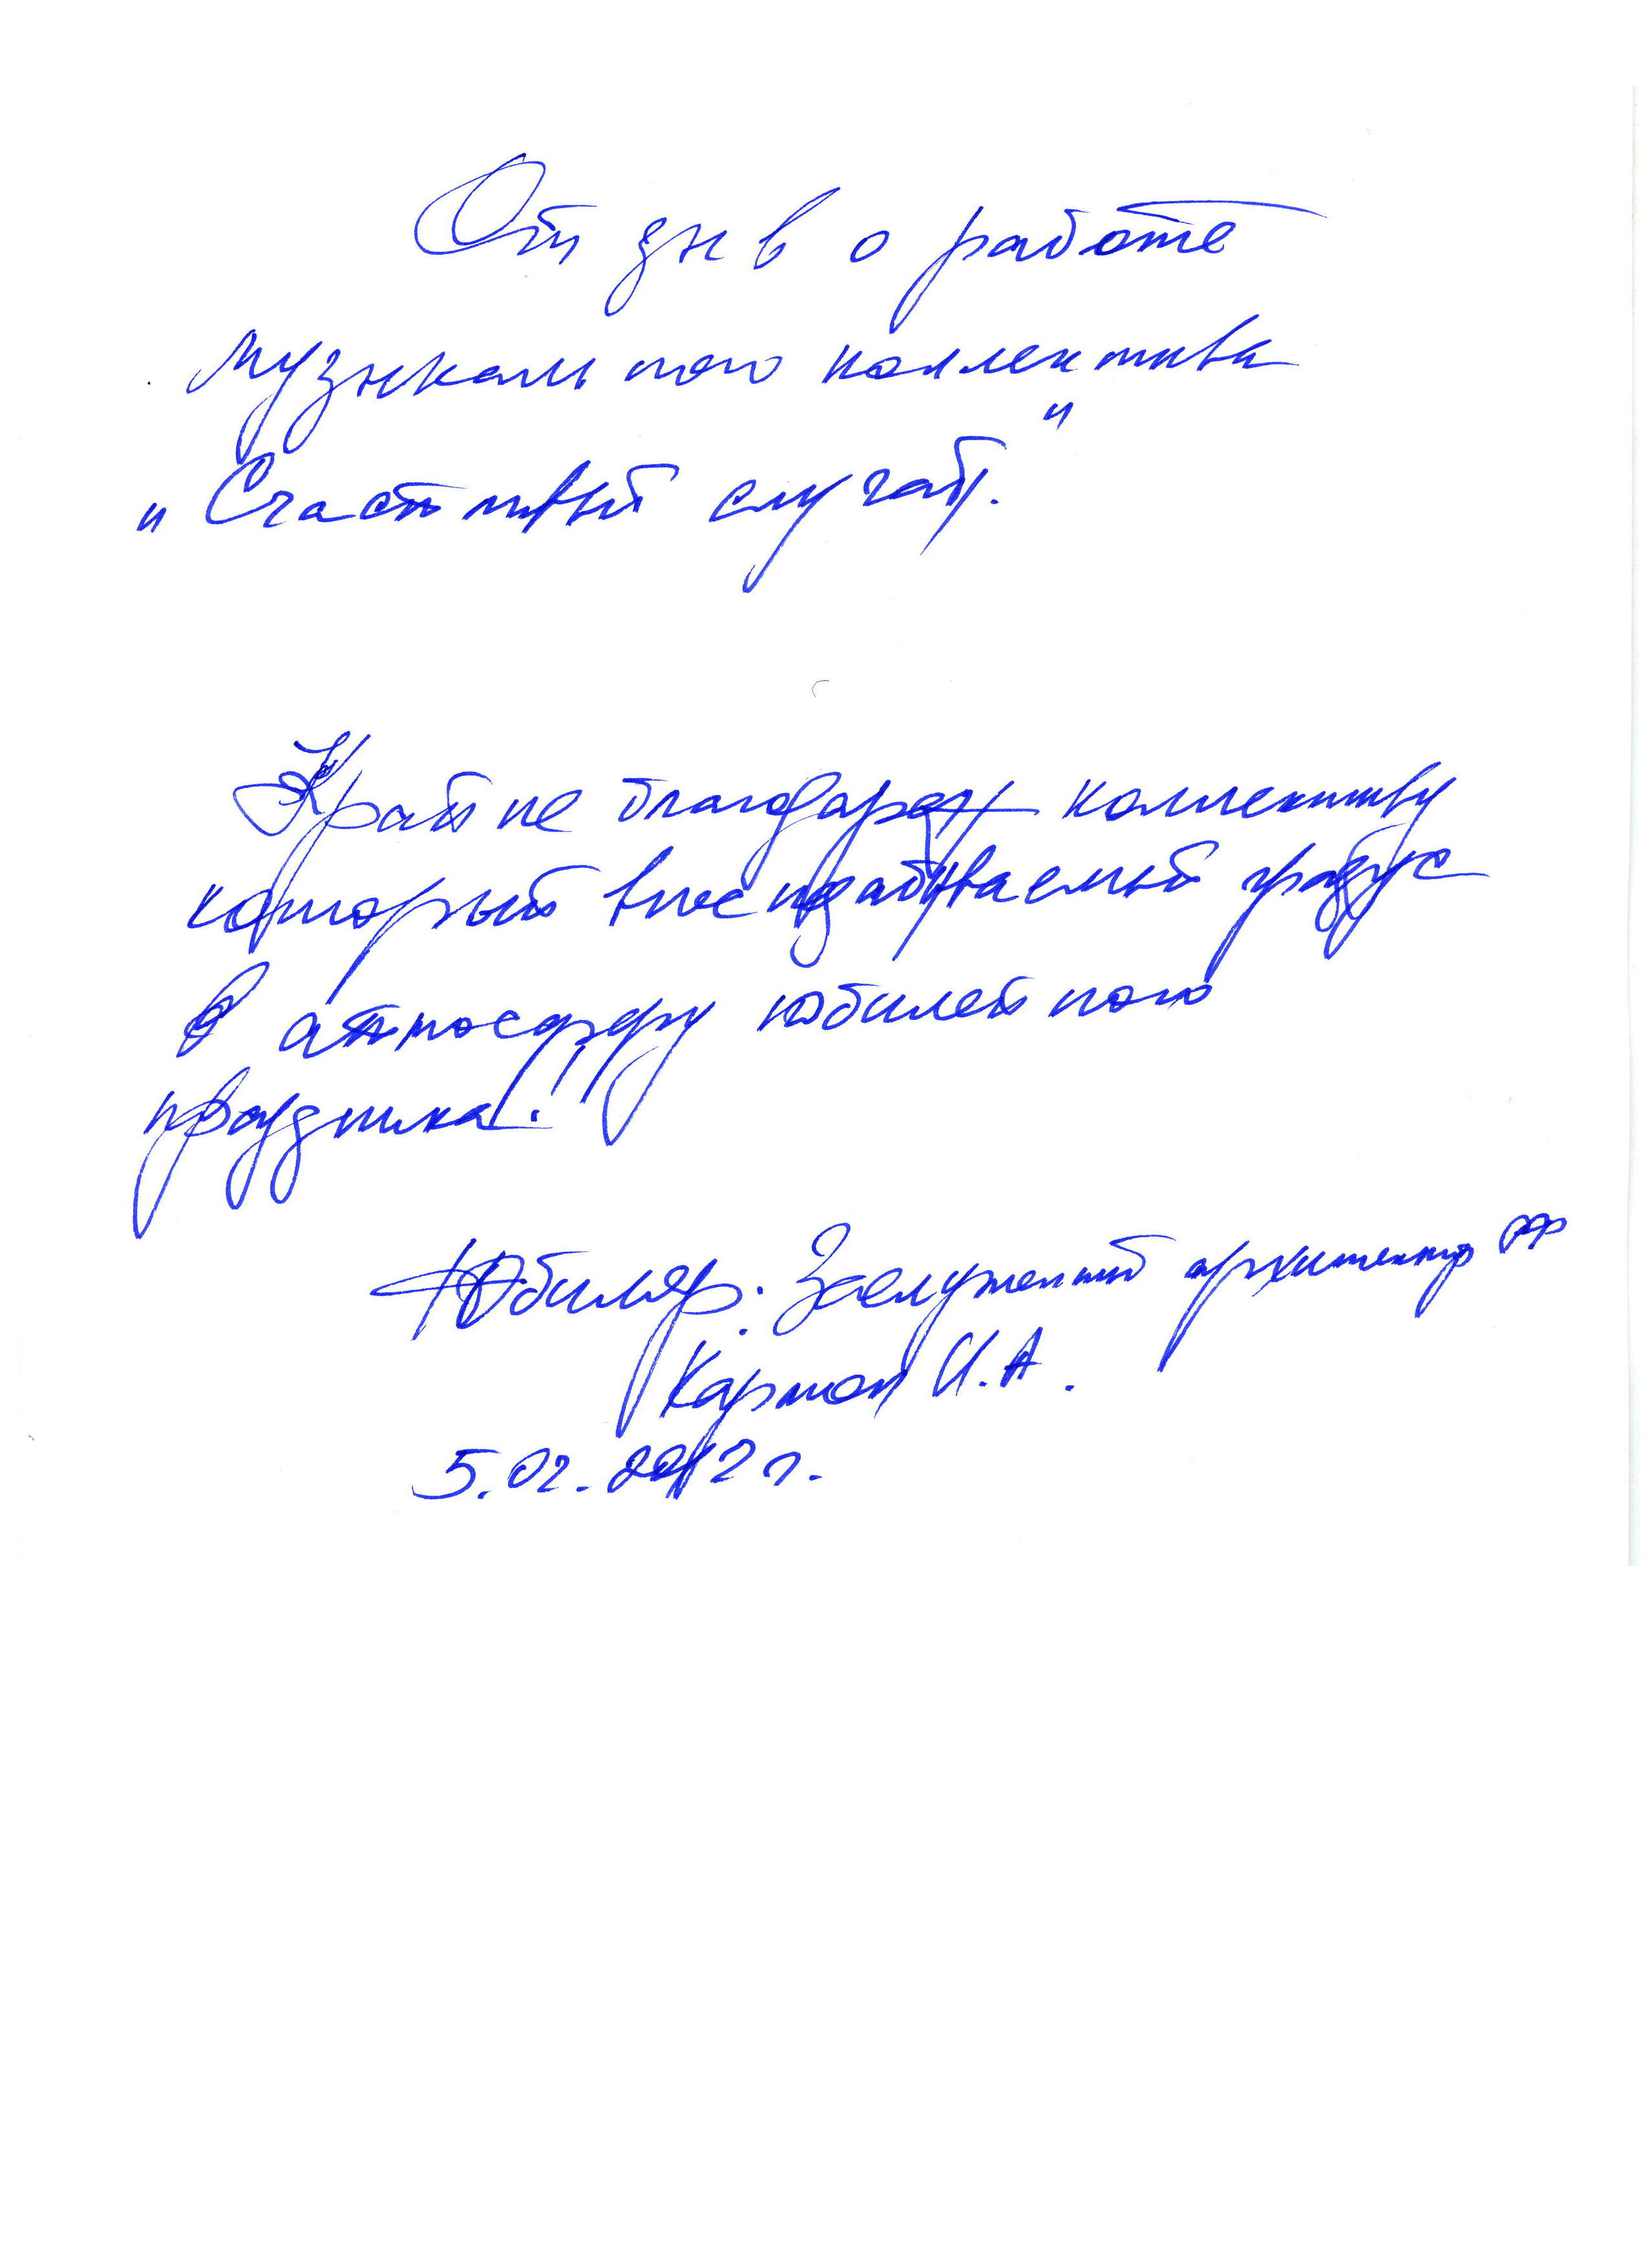 Отзыв о работе
музыкального коллектива
„Счастливый случай."
Крайне благодарен коллективу
который внес незабываемый градус
в атмосферу юбилейного
праздника!!!
Юбиляр. Заслуженный архитектор РФ
И.А.
5.02.2012 г.